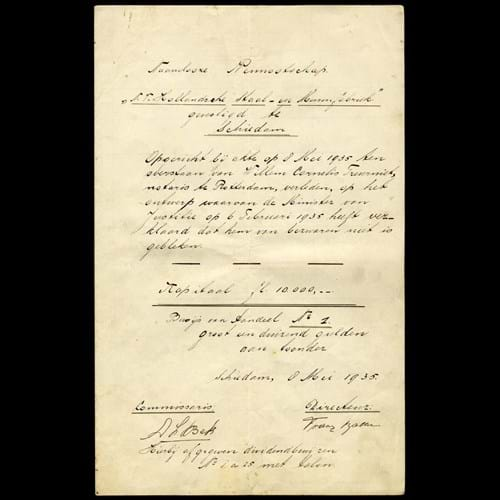 Naamlooze Vennootschap
„N.V. Hollandsche Staal- en
gevestigd te
Schiedam
Opgericht bij akte op 8 Mei 1935 ten
overstaan van Willem Cornelis Treurniet,
notaris te Rotterdam, verleden, op het
ontwerp waarvan de Minister van
Justitie op 6 Februari 1935 heeft ver-
klaard dat hem van bezwaren niet is
gebleken.
Kapitaal fl 10.000,--
Bewijs van Aandeel No 2
groot een duizend gulden
aan toonder
Schiedam, 8 Mei 1935.
Commissaris Directeur
Franz
Hierbij afgegeven dividendbewijzen
No 1 a 25 met talon